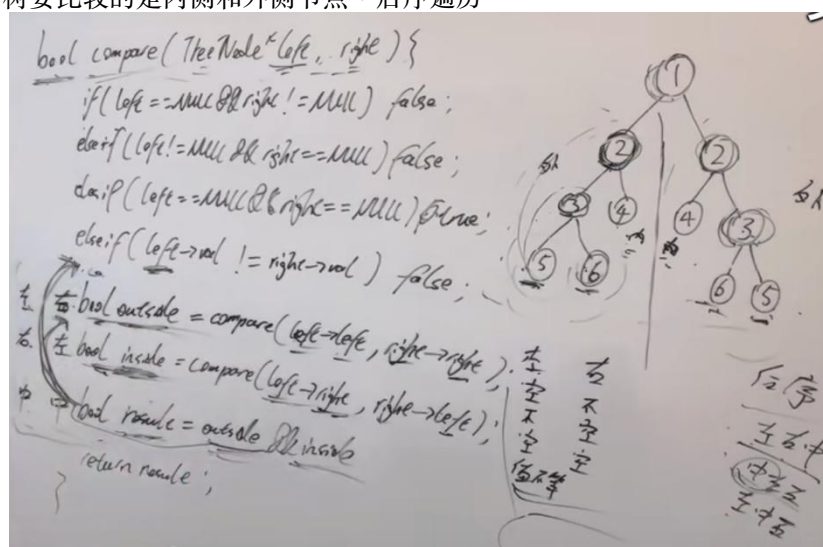 树要比较的是内侧和外侧节点，后序遍历
bool compare(TreeNode* left, right) {
if(left==NULL && right!=NULL) false;
elseif(left!=NULL && right==NULL) false;
elseif(left==NULL && right==NULL) true;
elseif(left->val != right->val) false;
左 右 bool outside = compare(left->left, right->right);
右 左 bool inside = compare(left->right, right->left);
中 中 bool result = outside && inside
return result;
}
1
2 2
3 4 4 3
5 6 6 5
左 右
空 不空
不空 空
值不等
后序
左右中
中左右
左中右